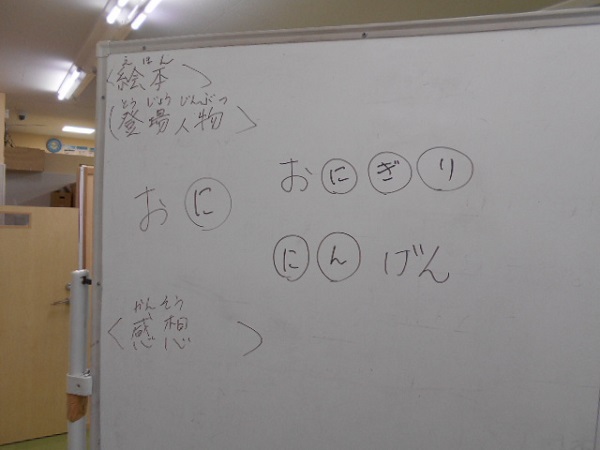 えほん
〈絵本〉
とうじょうじんぶつ
〈登場人物〉
おに
おにぎり
にんげん
かんそう
〈感想 〉